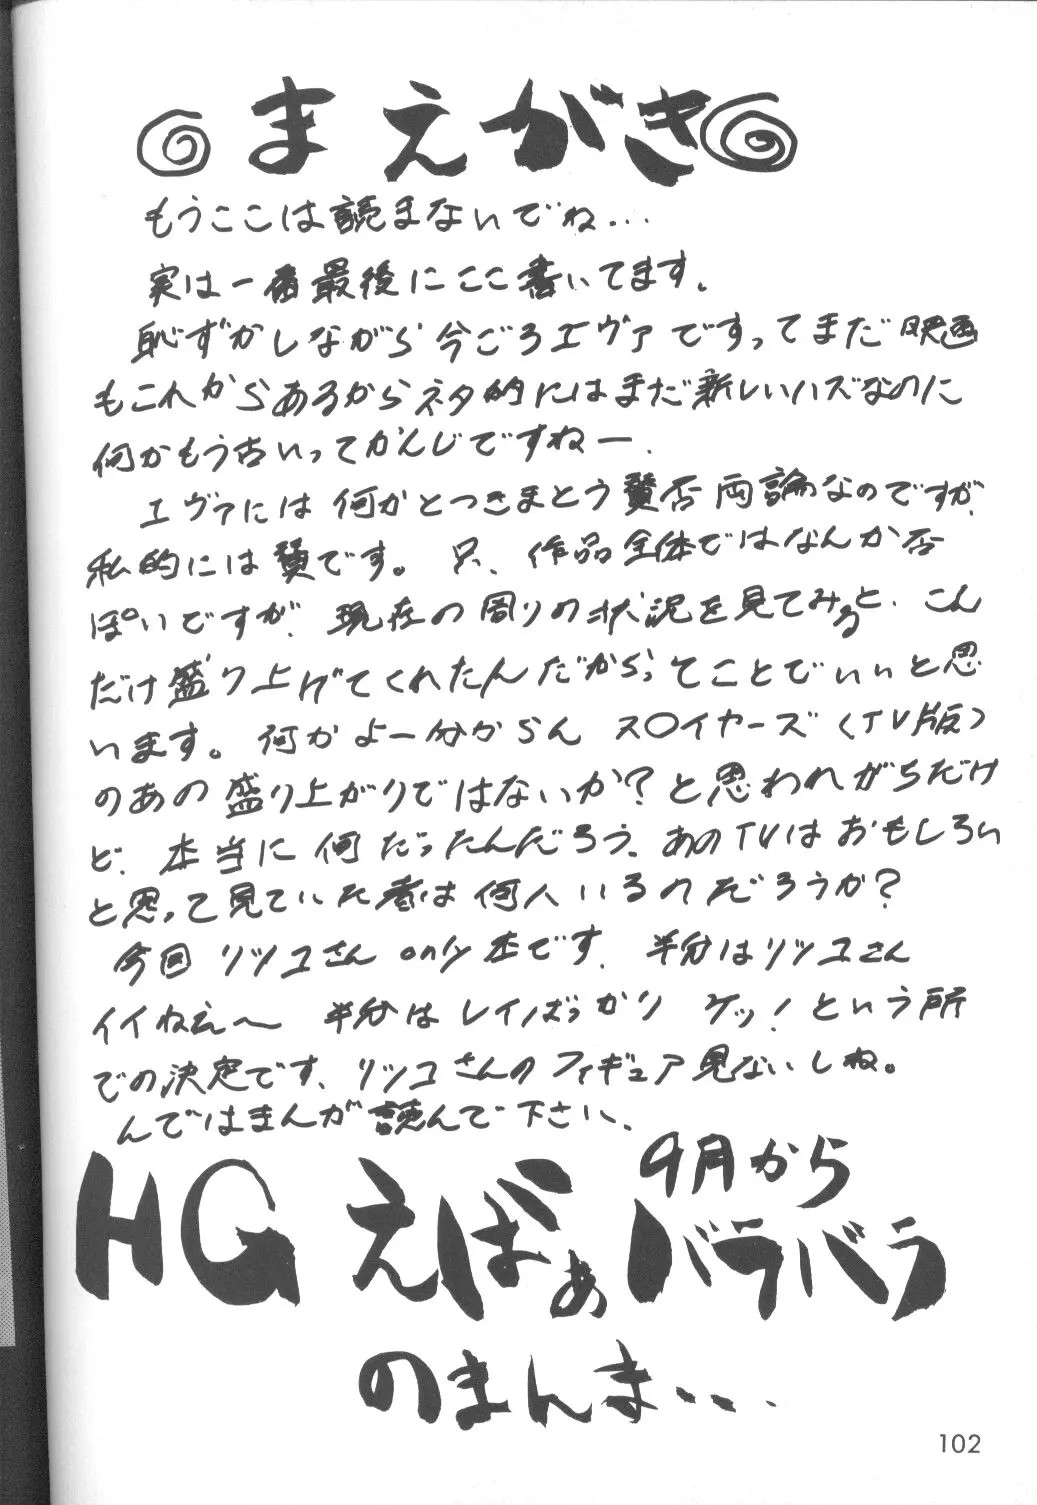 まえがき
もうここは読まないでね…
実は一番最後にここ書いてます。
恥ずかしながら今ごろエヴァですってまだ映画
もこれからあるからネタ的にはまだ新しいハズなのに
何かもう古いってかんじですねー.
エヴァには何かとつきまとう賛否両論なのですが、
私的には賛です。只、作品全体ではなんか否
ぽいですが、現在の周りの状況を見てみると、こん
だけ盛り上げてくれたんだからってことでいいと思
います。何かよー分からんス〇イヤーズ(TV版)
のあの盛り上がりではないか?と思われがちだけ
ど、本当に何だったんだろう、あのTVはおもしろい
と思って見ていた者は何人いるのだろうか?
今回リツコさんonly本です、半分はリツコさん
イイねえ〜 半分はレイばっかり ケッ!という所
での決定です、リツコさんのフィギュア見ないしね。
んではまんが読んで下さい、
9月から
HGえばぁバラバラ
のまんま...
102